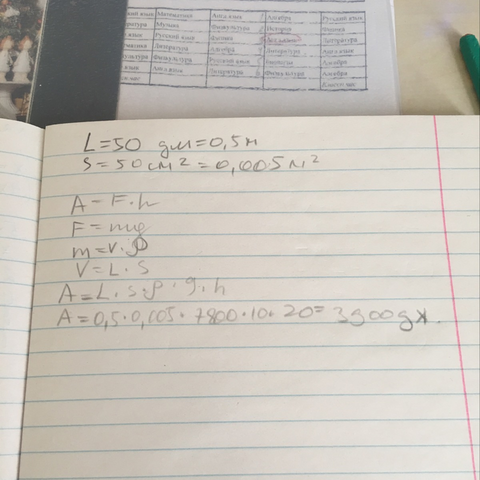 язык Математика Англ язык Алгебра Русский язык
Музыка Физкультура История Физика
язык Русский язык Физика Литература
Литература Алгебра Литература Англ язык
Физкультура Русский язык Алгебра
Англ язык Литература Физкультура Алгебра
L=50 дм=0,5м
S=50см²=0,005м²
A=F·h
F=mg
m=V·ρ
V=L·S
A=L·S·ρ·g·h
A=0,5·0,005·7800·10·20=3900дж.